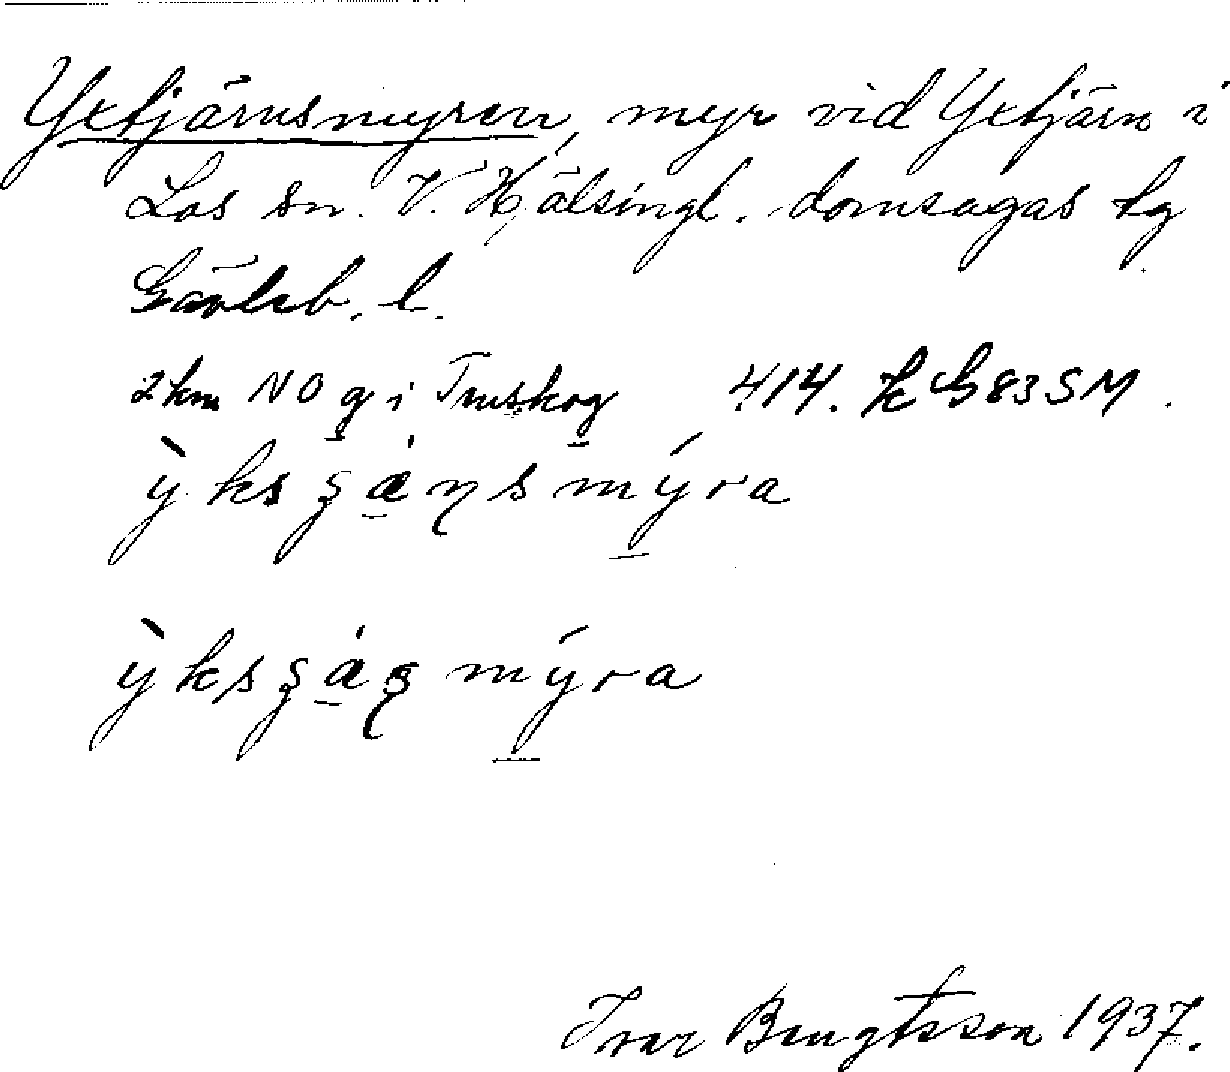 Yxtjärnsmyren, myr vid Yxtjärn i
Los sn. V. Hälsingl. domsagas tg
Gävleb. l.
2 km NO g i Tenskog 414. K G83SM.
ỳksşä́ŋsmýra
ỳksşä́şmýra
Ivar Bengtsson 1937.